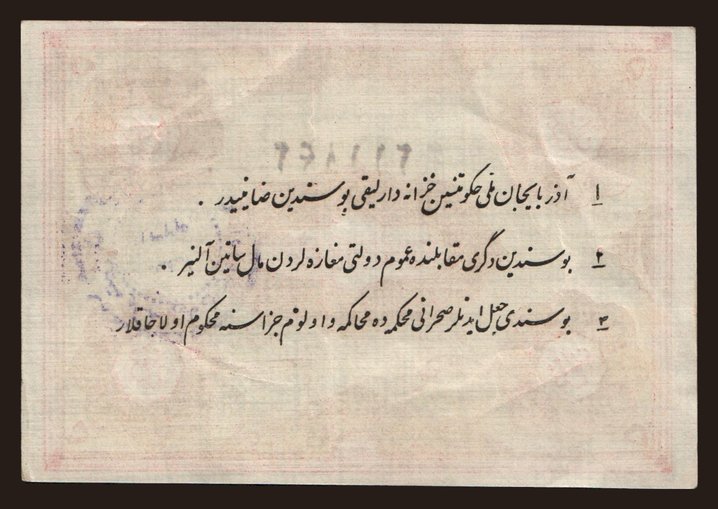 ۱ آذربایجان ملی حکومتینین خزانه داریلیقی بو سندین ضامنیدر .
۲ بو سندین دگری مقابلنده عموم دولتی مغازه لردن مال ساتین آلنیر .
۳ بو سندی جعل ایدنلر صحرائی محکمه ده محاکمه و اولوم جزاسنه محکوم اولاجاقلار